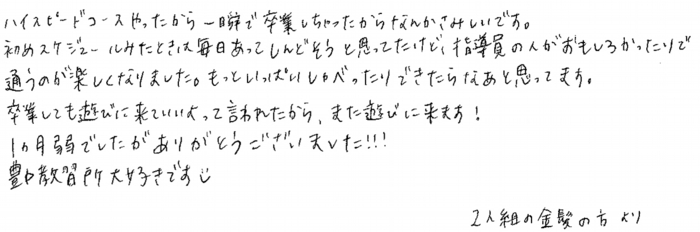 ハイスピードコースやったから一瞬で卒業しちゃったからなんかさみしいです。
初めスケジュールみたときは毎日あってしんどそうと思ってたけど、指導員の人がおもしろかったりで
通うのが楽しくなりました。もっといっぱいしゃべったりできたらなあと思ってます。
卒業しても遊びに来ていいよって言われたから、また遊びに来ます!
1カ月弱でしたがありがとうございました!!!
豊中教習所大好きです
2人組の金髪の方より